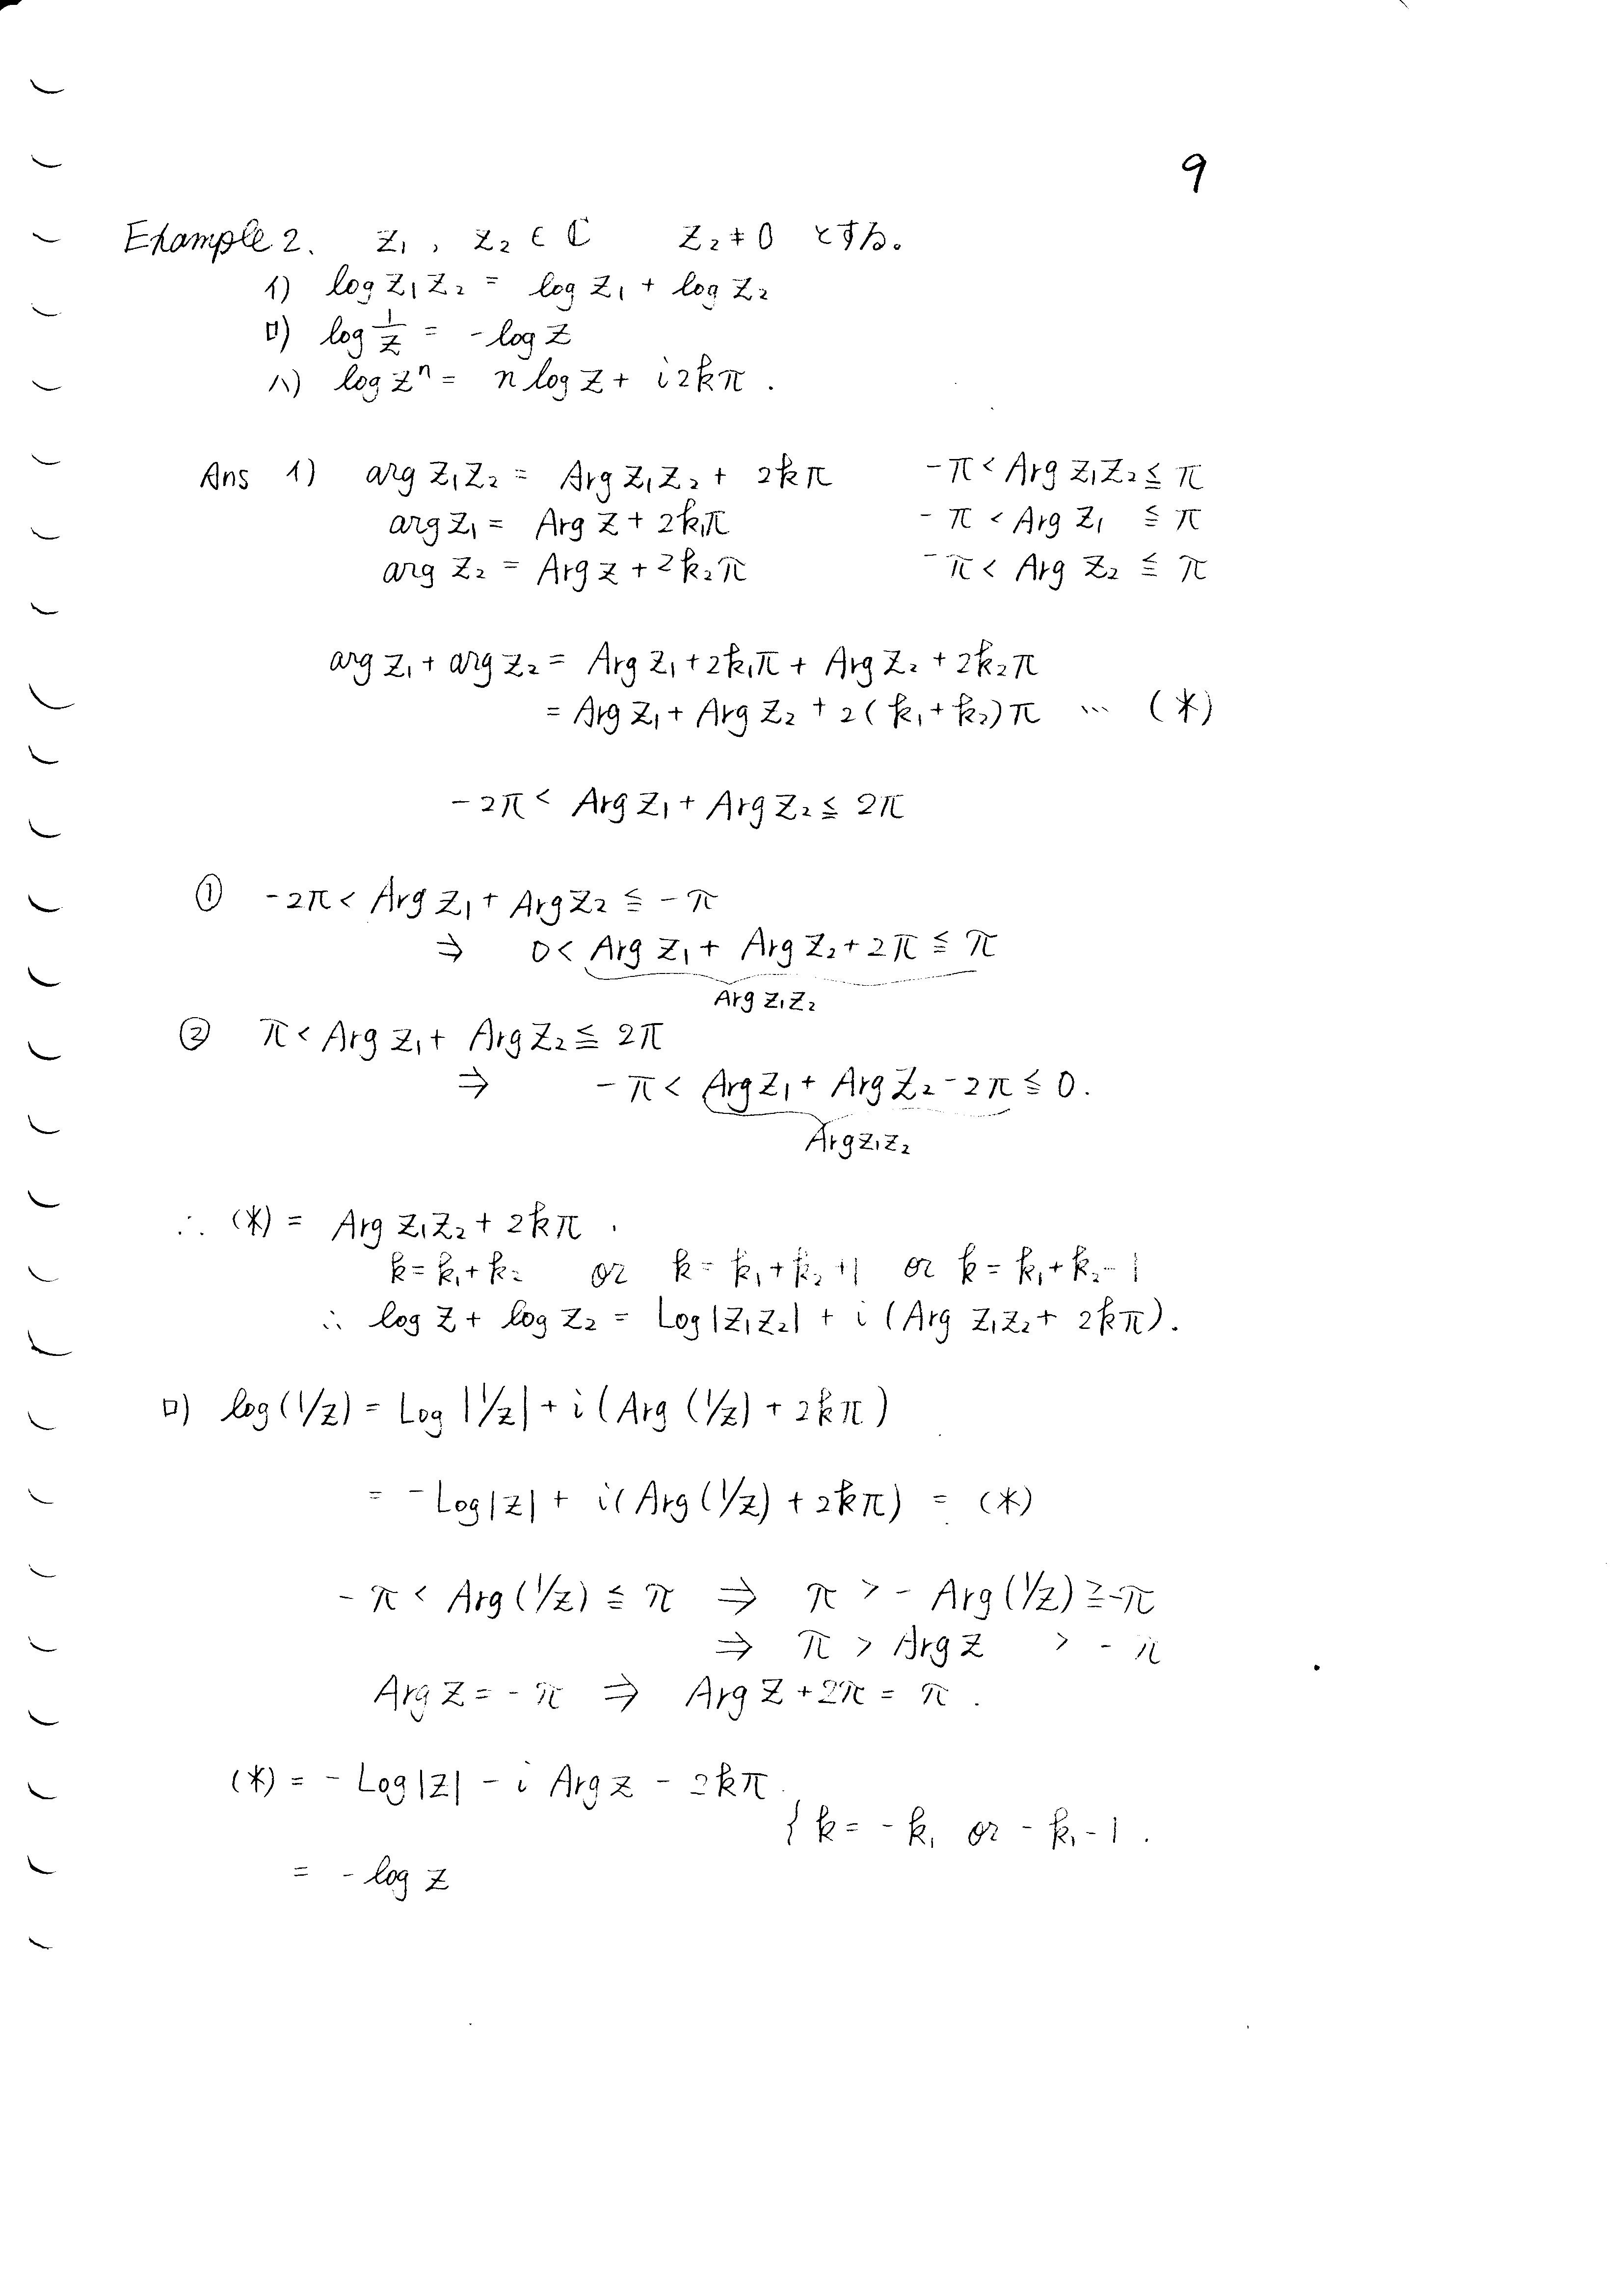 9
Example 2. z₁, z₂ ∈ ℂ z₂ ≠ 0 とする。
イ) log z₁z₂ = log z₁ + log z₂
ロ) log 1/z = -log z
ハ) log zⁿ = n log z + i2kπ.
Ans イ) arg z₁z₂ = Arg z₁z₂ + 2kπ -π < Arg z₁z₂ ≦ π
arg z₁ = Arg z + 2k₁π -π < Arg z₁ ≦ π
arg z₂ = Arg z + 2k₂π -π < Arg z₂ ≦ π
arg z₁ + arg z₂ = Arg z₁ + 2k₁π + Arg z₂ + 2k₂π
= Arg z₁ + Arg z₂ + 2(k₁ + k₂)π … (*)
-2π < Arg z₁ + Arg z₂ ≦ 2π
① -2π < Arg z₁ + Arg z₂ ≦ -π
⇒ 0 < Arg z₁ + Arg z₂ + 2π ≦ π
Arg z₁z₂
② π < Arg z₁ + Arg z₂ ≦ 2π
⇒ -π < Arg z₁ + Arg z₂ - 2π ≦ 0.
Arg z₁z₂
∴ (*) = Arg z₁z₂ + 2kπ.
k = k₁ + k₂ or k = k₁ + k₂ + 1 or k = k₁ + k₂ - 1
∴ log z + log z₂ = Log |z₁z₂| + i (Arg z₁z₂ + 2kπ).
ロ) log (1/z) = Log |1/z| + i (Arg (1/z) + 2kπ)
= -Log |z| + i (Arg (1/z) + 2kπ) = (*)
-π < Arg (1/z) ≦ π ⇒ π > -Arg (1/z) ≧ -π
⇒ π > Arg z > -π
Arg z = -π ⇒ Arg z + 2π = π.
(*) = -Log |z| - i Arg z - 2kπ.
{ k = -k₁ or -k₁ - 1.
= -log z